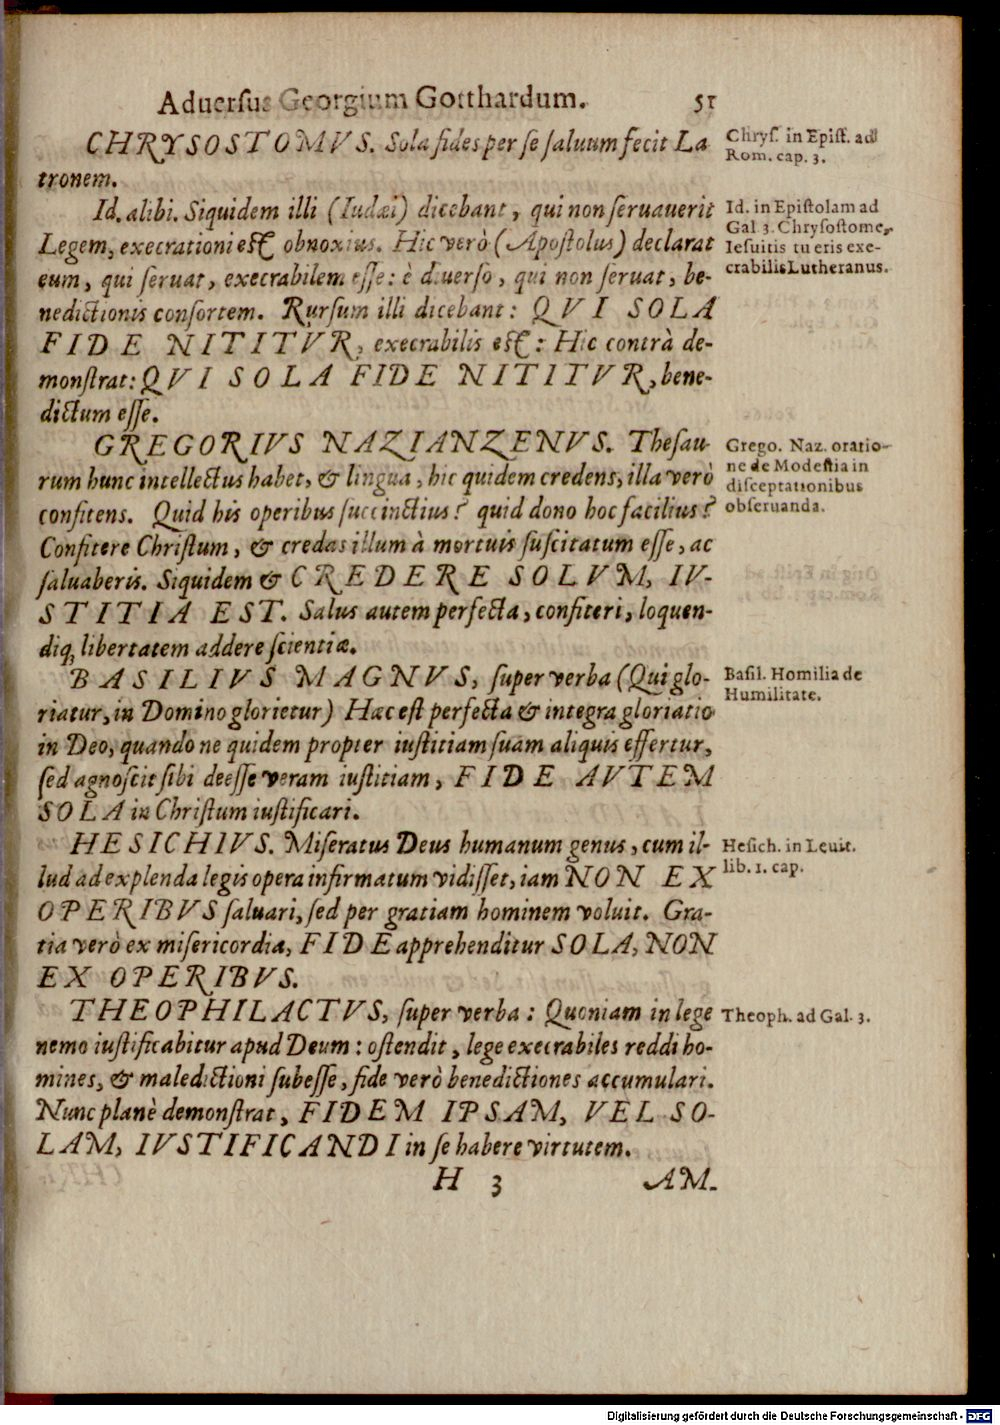 Aduersus Georgium Gotthardum. 51
CHRYSOSTOMVS. Sola fides per se saluum fecit La
tronem.
Chrys. in Epist. ad
Rom. cap. 3.
Id. alibi. Siquidem illi (Iudæi) dicebant, qui non seruauerit
Legem, execrationi est obnoxius. Hic verò (Apostolus) declarat
eum, qui seruat, execrabilem esse: è diuerso, qui non seruat, be-
nedictionis consortem. Rursum illi dicebant: QVI SOLA
FIDE NITITVR, execrabilis est: Hic contrà de-
monstrat: QVI SOLA FIDE NITITVR, bene-
dictum esse.
Id. in Epistolam ad
Gal 3. Chrysostome,
Iesuitis tu eris exe-
crabilis Lutheranus.
GREGORIVS NAZIANZENVS. Thesau-
rum hunc intellectus habet, & lingua, hic quidem credens, illa verò
confitens. Quid his operibus succinctius? quid dono hoc facilius?
Confitere Christum, & credas illum à mortuis suscitatum esse, ac
saluaberis. Siquidem & CREDERE SOLVM, IV-
STITIA EST. Salus autem perfecta, confiteri, loquen-
diq́, libertatem addere scientiæ.
Grego. Naz. oratio-
ne de Modestia in
disceptationibus
obseruanda.
BASILIVS MAGNVS, super verba (Qui glo-
riatur, in Domino glorietur) Hæc est perfecta & integra gloriatio
in Deo, quando ne quidem propter iustitiam suam aliquis effertur,
sed agnoscit sibi deesse veram iustitiam, FIDE AVTEM
SOLA in Christum iustificari.
Basil. Homilia de
Humilitate.
HESICHIVS. Miseratus Deus humanum genus, cum il-
lud ad explenda legis opera infirmatum vidisset, iam NON EX
OPERIBVS saluari, sed per gratiam hominem voluit. Gra-
tia verò ex misericordia, FIDE apprehenditur SOLA, NON
EX OPERIBVS.
Hesich. in Leuit.
lib. 1. cap.
THEOPHILACTVS, super verba: Quoniam in lege
nemo iustificabitur apud Deum: ostendit, lege execrabiles reddi ho-
mines, & maledictioni subesse, fide verò benedictiones accumulari.
Nunc planè demonstrat, FIDEM IPSAM, VEL SO-
LAM, IVSTIFICANDI in se habere virtutem.
Theoph. ad Gal. 3.
H 3 AM-
Digitalisierung gefördert durch die Deutsche Forschungsgemeinschaft - DFG